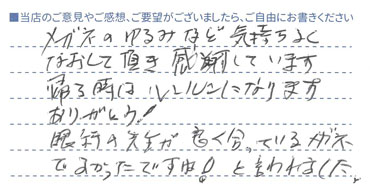 ■当店のご意見やご感想、ご要望がございましたら、ご自由にお書きください
メガネのゆるみなど気持ちよく
なおして頂き感謝しています
帰る時はルンルンになります
ありがとう!
眼科の先生が良く合っているメガネ
でよかったですね!と言われました。